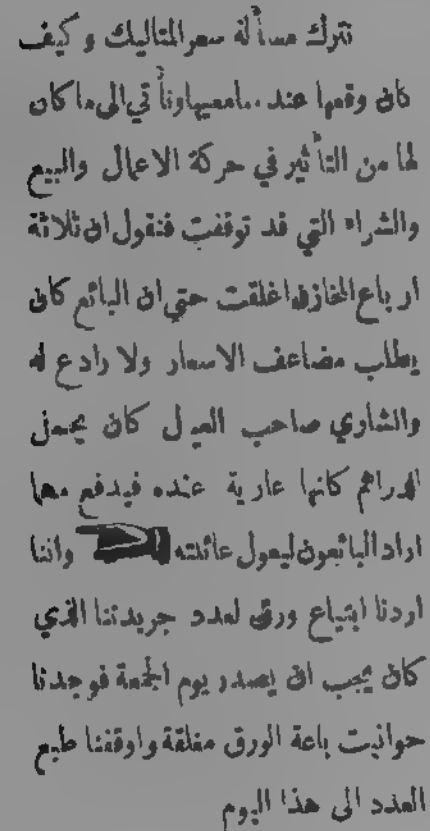 نترك مسألة سعر المتاليك وكيف
كان وقعها عند سامعيها ونأتي الى ما كان
لها من التأثير في حركة الاعمال والبيع
والشراء التي قد توقفت فنقول ان ثلاثة
ارباع المخازن اغلقت حتى ان البائع كان
يطلب مضاعف الاسعار ولا رادع له
والشاري صاحب العيال كان يحمل
الدراهم كانها عارية عنده فيدفع مهما
اراد البائعون ليعول عائلته واننا
اردنا ابتياع ورق لعدد جريدتنا الذي
كان يجب ان يصدر يوم الجمعة فوجدنا
حوانيت باعة الورق مغلقة واوقفنا طبع
العدد الى هذا اليوم